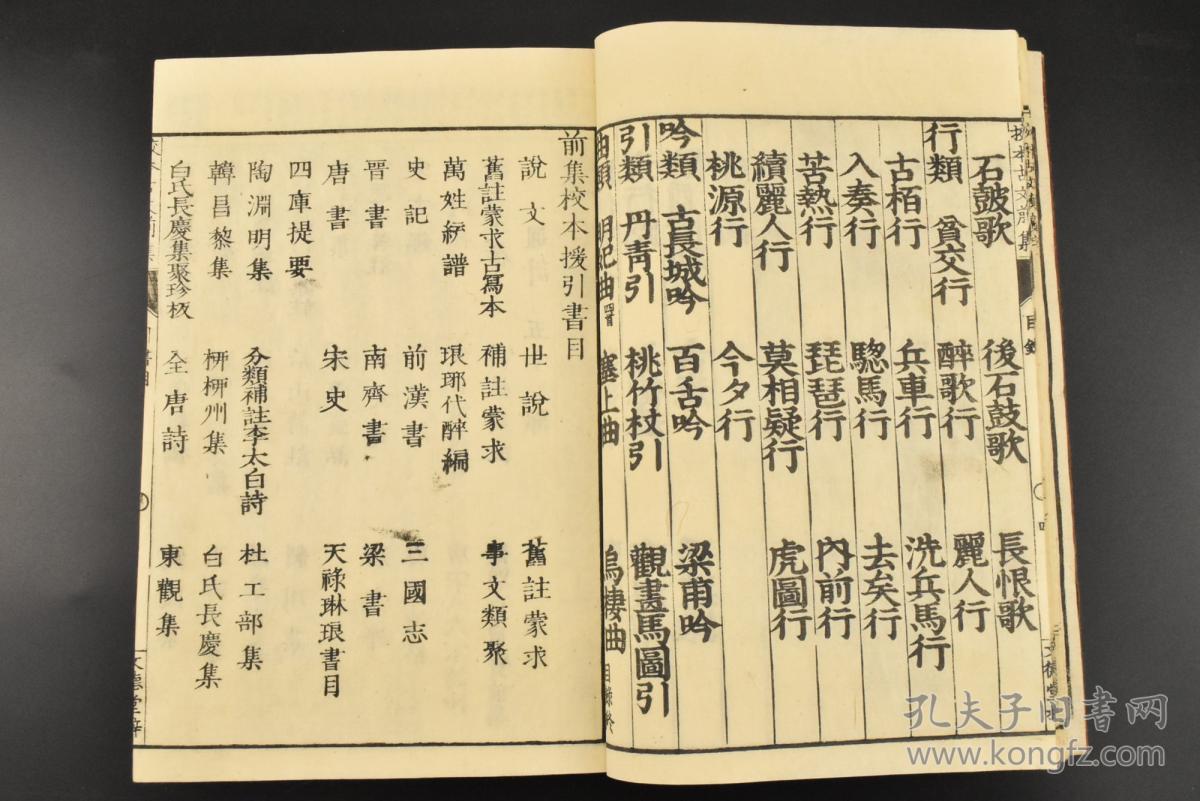 石鼓歌 後石鼓歌 長恨歌
行類 貧交行 醉歌行 麗人行
古栢行 兵車行 洗兵馬行
入奏行 驄馬行 去矣行
苦熱行 琵琶行 內前行
續麗人行 莫相疑行 虎圖行
桃源行 今夕行
吟類 古長城吟 百舌吟 梁甫吟
引類 丹青引 桃竹杖引 觀畫馬圖引
曲類 明妃曲 塞上曲 烏棲曲 目錄終
前集校本援引書目
說文 世說 舊註蒙求
舊註蒙求古寫本 補註蒙求 事文類聚
萬姓統譜 琅琊代醉編
史記 前漢書 三國志
晉書 南齊書 梁書
唐書 宋史 天祿琳琅書目
四庫提要
陶淵明集 分類補註李太白詩 杜工部集
韓昌黎集 柳柳州集 白氏長慶集
白氏長慶集聚珍板 全唐詩 東觀集
文德堂梓
目錄
孔夫子旧書网
www.kongfz.com